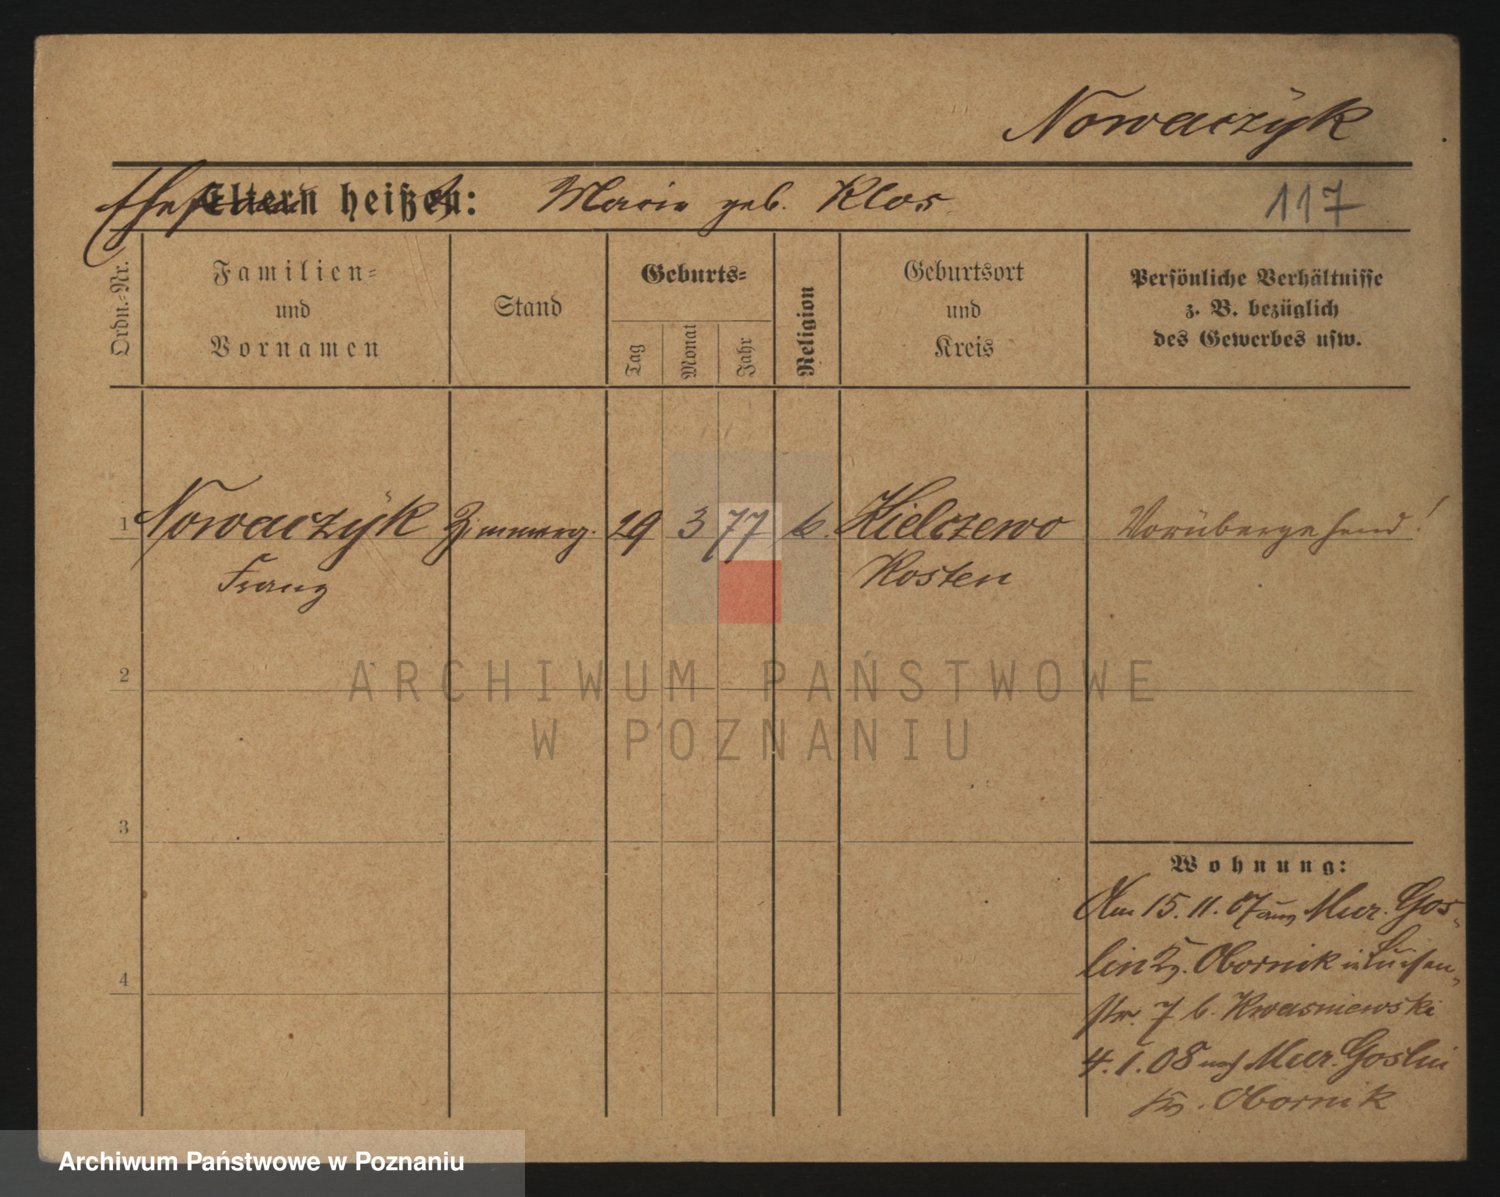 Nowaczyk
Ehefrau Eltern heißen: Marie geb. Klos
117
Ordn.-Nr.
Familien-
und
Vornamen
Stand
Geburts-
Tag
Monat
Jahr
Religion
Geburtsort
und
Kreis
Persönliche Verhältnisse
z. B. bezüglich
des Gewerbes usw.
1 Nowaczyk Zimmerg. 29 3 77 k. Kielczewo Vorübergehend!
Franz Kosten
2
3
4
Wohnung:
Am 15.11.07 aus Mur. Gos-
lin Kr. Obornik in Luisen-
str. 7 b. Kwasniewski
4.1.08 nach Mur. Goslin
Kr. Obornik
ARCHIWUM PAŃSTWOWE
W POZNANIU
Archiwum Państwowe w Poznaniu